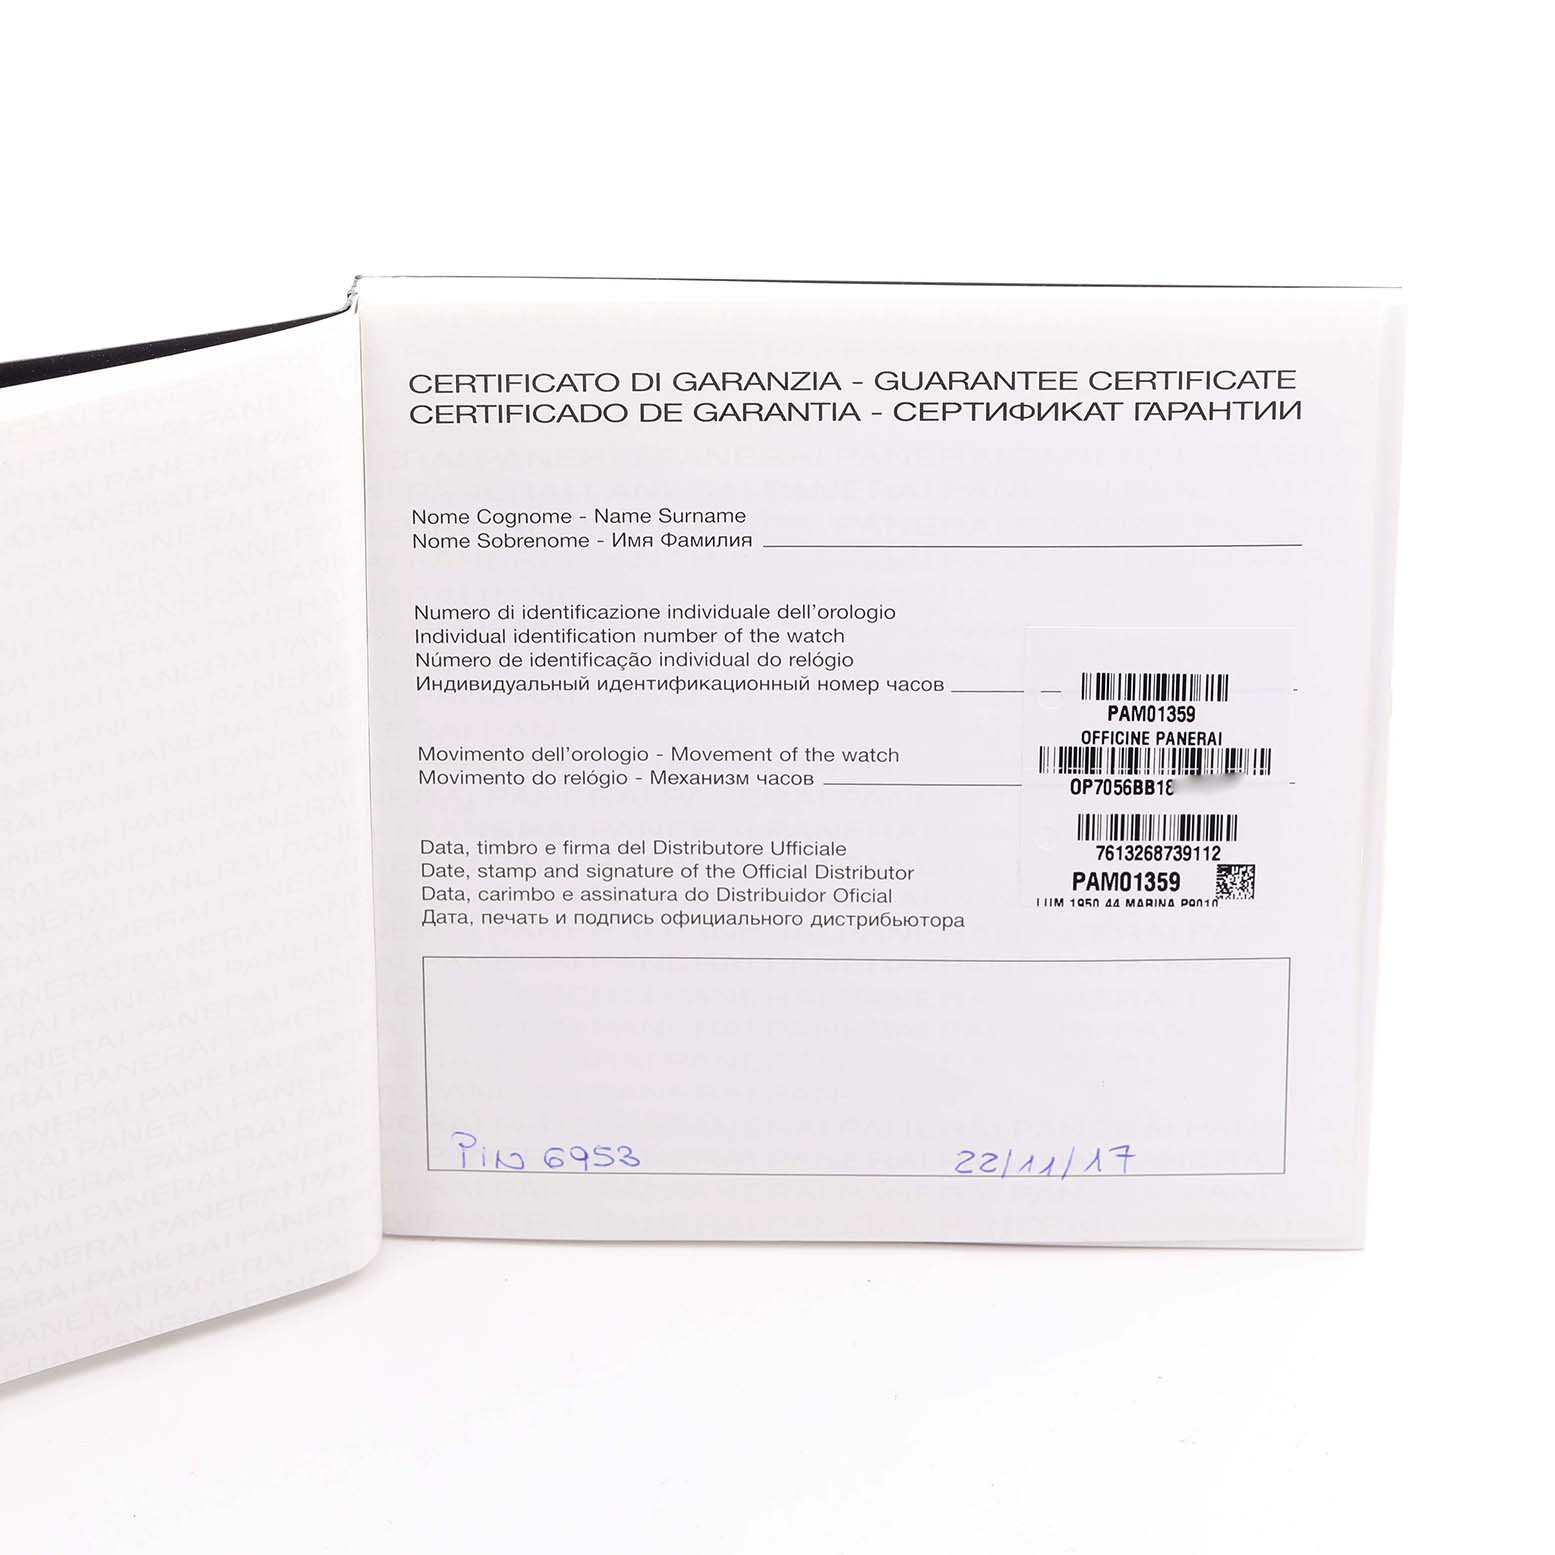 CERTIFICATO DI GARANZIA - GUARANTEE CERTIFICATE
CERTIFICADO DE GARANTIA - СЕРТИФИКАТ ГАРАНТИИ
Nome Cognome - Name Surname
Nome Sobrenome - Имя Фамилия
Numero di identificazione individuale dell'orologio
Individual identification number of the watch
Número de identificação individual do relógio
Индивидуальный идентификационный номер часов
PAM01359
OFFICINE PANERAI
Movimento dell'orologio - Movement of the watch
Movimento do relógio - Механизм часов
OP7056BB18
7613268739112
PAM01359
LUM 1950 44 MARINA P9010
Data, timbro e firma del Distributore Ufficiale
Date, stamp and signature of the Official Distributor
Data, carimbo e assinatura do Distribuidor Oficial
Дата, печать и подпись официального дистрибьютора
PIN 6953 22/11/17